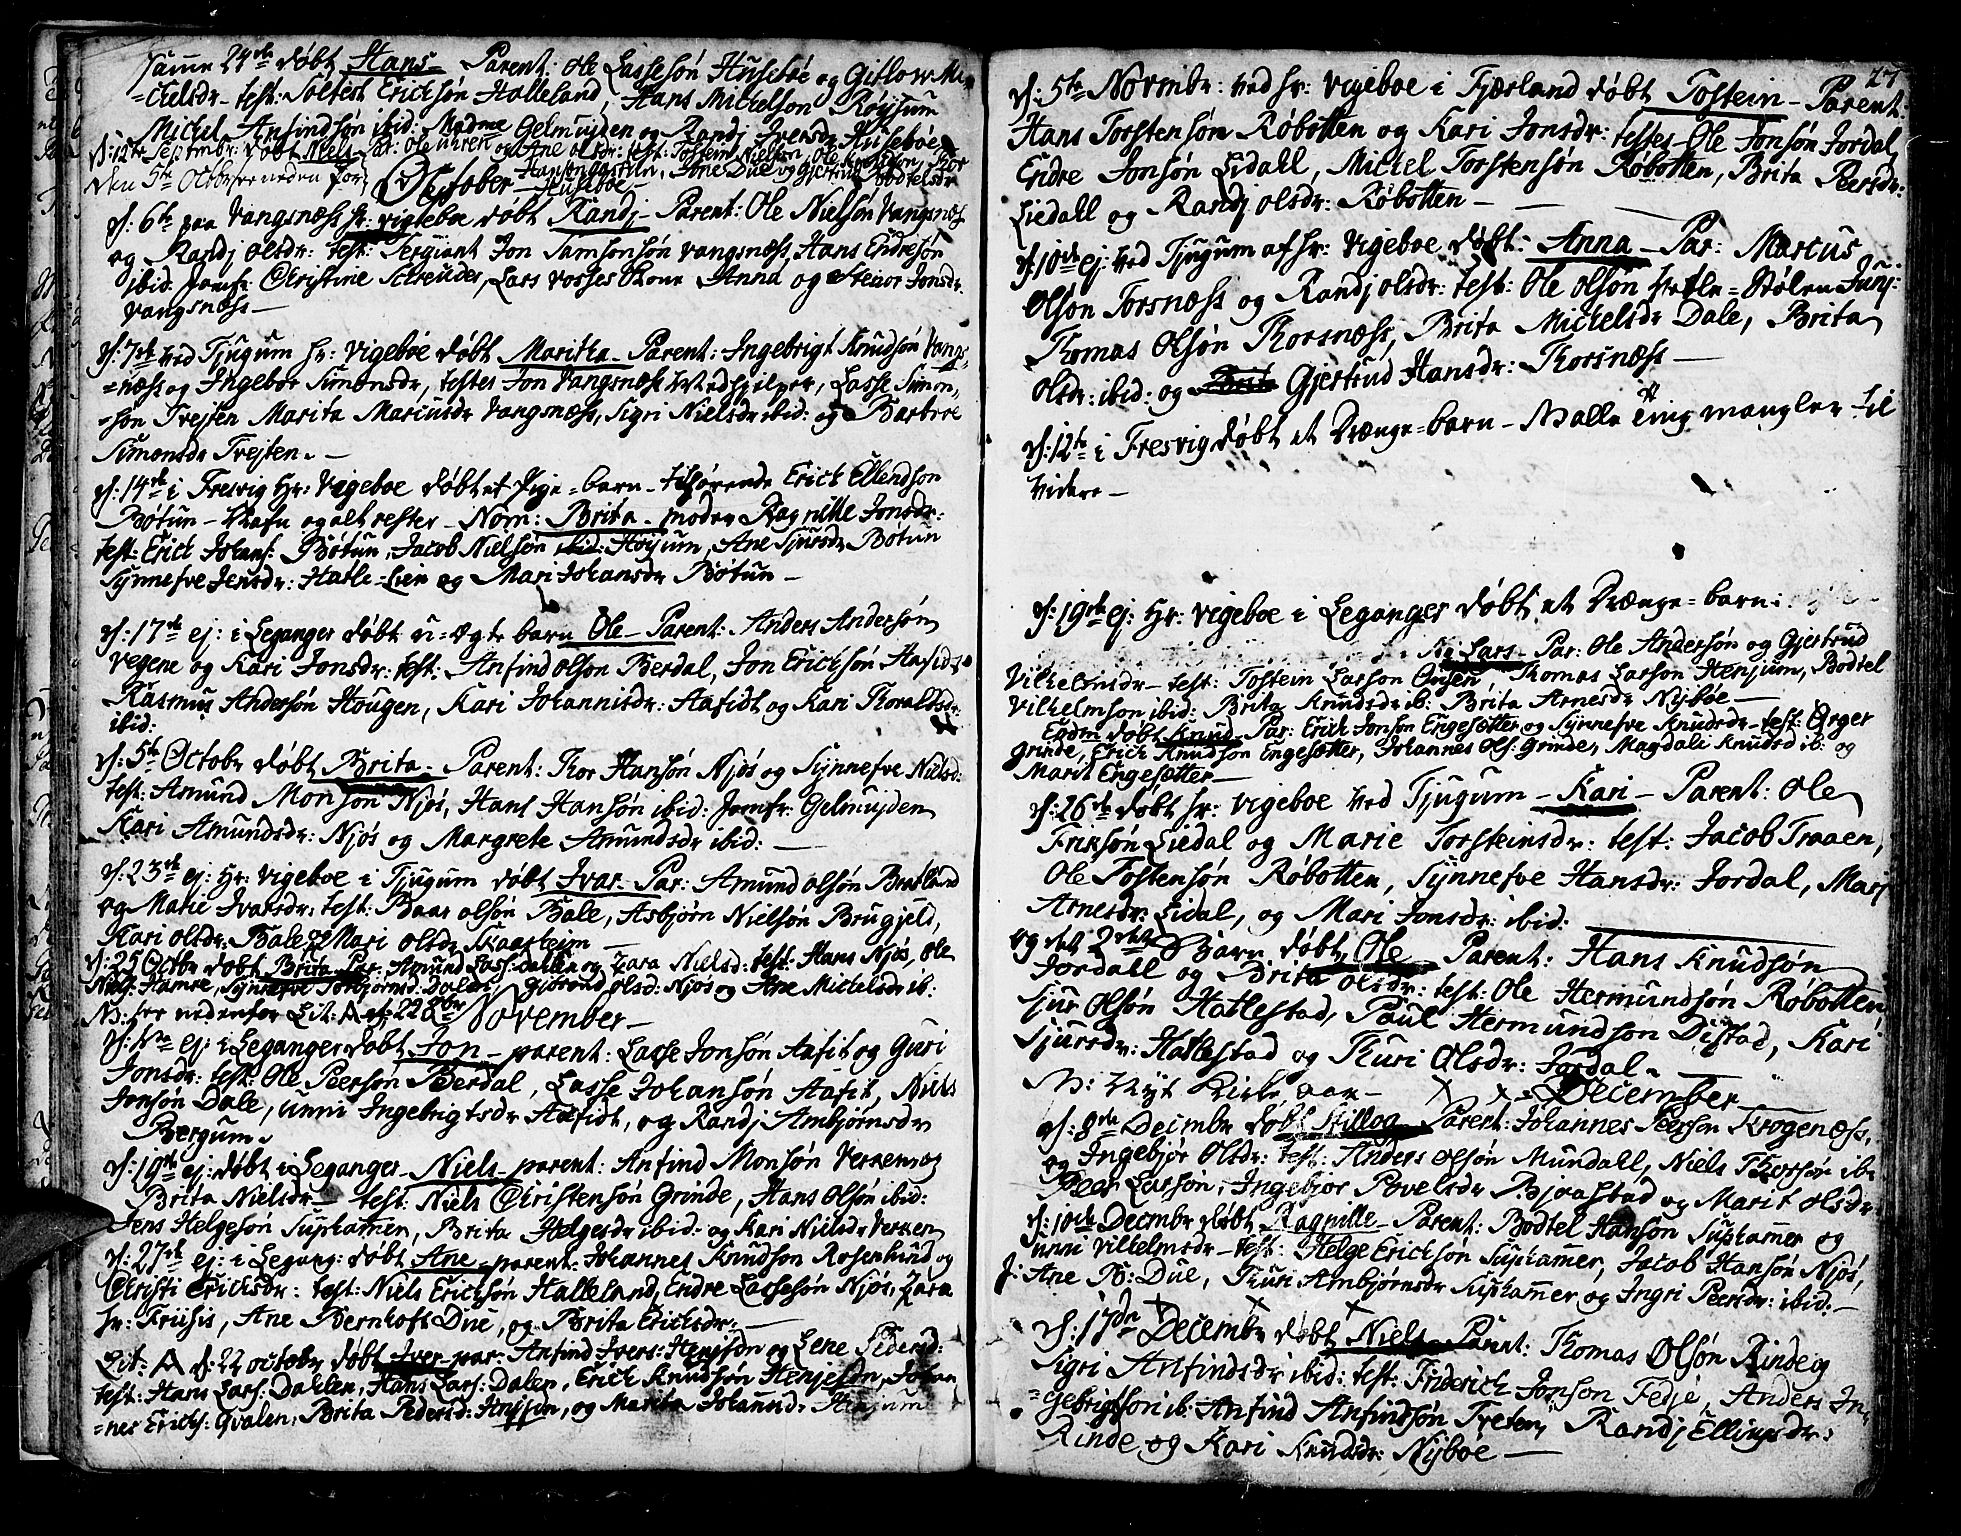 Samme 24de døbt Hans - Parent: Ole Lassesøn Husebøe og Gitlow Mi-
=ckelsdr - test: Erickson Halleland, Hans Mickelson Röysum
Mickel Anfindsøn ibid: Madme Gelmuyden og Randj Iversdr Husebøe
d: 12te Septembr: døbt Niels - Par: Ole Uhren og Ane Olsdr: test: Tostein Nielson, Ole
Hansøn, Ane Due og Gjertrud Bodtelsdr
Den 5te October neden for) October - Husebøe -
d: 6te paa Vangsness hr: Vigeboe døbt Randj - Parent: Ole Nielsøn Vangsness
og Randj Olsdr: test: Sergiant Jon Samsonsøn Vangsness, Hans Endresøn
ibid: Jomfr: Christine Schreuder, Lars Vosses Kone Anna og Jonsdr
Vangsness -
d: 7de ved Tjugum hr: Vigeboe døbt Maritha - Parent: Ingebrigt Knudsøn Vangs-
=ness og Ingebor Simonsdr, testes Jon Vangsness Medhielper, Lasse Simon-
=son Trejten Marita Marcusdr Vangsness, Sigri Nielsdr ibid: og Barbere
Simonsdr Trejten. -
d: 14de i Fresvig Hr: Vigeboe døbt et Pige=barn - tilhørende Erick Ellendson
Bøtun - Nafn og alt rester - Nom: Brita - moder Ragnilde Jonsdr:
test: Erick Johans: Bøtun, Jacob Nielsøn ibid: Høyum, Ane Sjursdr Bøtun
Synnefve Jensdr: Hatle=Lien og Mari Johansdr Bøtun -
d: 17de ej: i Leganger døbt u=ægte barn Ole - Parent: Anders Andersøn
Vegene og Kari Jonsdr: test: Anfind Olson Berdal, Jon Ericksøn Hafidt
Rasmus Andersøn Hougen, Kari Johannisdr: Aafidt og Kari Thoraldsdr:
ibid:
d: 5te Octobr døbt Brita - Parent: Thor Hansøn Njøs og Synnefve Nielsd:
test: Amund Monsøn Njøs, Hans Hansøn ibid: Jomfr: Gelmuyden
Kari Amundsdr: Njøs og Margrete Amundsdr ibid: -
d: 23de ej: Hr: Vigeboe i Tjugum døbt Ivar - Par: Amund Olsøn Bratland
og Marie Ivarsdr: test: Baar Olsøn Bale, Asbjørn Nielsøn Brugjeld,
Kari Olsdr: Bale og Mari Olsdr Skaasheim -
d: 25 Octbr døbt Brita - Par: Amund Lass: Dallen og Zara Nielsd: test: Hans Njøs, Ole
Niels: Hamre, Synnefve Torbjørnsd: Dalen Gjertrud Olsd: Njøs og Ane Mickelsdr ib:
N: see nedenfor Lit: A d: 22 8br November -
d: ej: i Leganger døbt Jon - parent: Lasse Jonsøn Aafit og Guri
Jonsdr: test: Ole Peersøn Berdal, Lasse Johansøn Aafit, Niels
Jonsøn Dale, Unni Ingebrigtsdr Aafidt, og Randj Ambjørnsdr
Bergum.
d: 19de ej: døbt i Leganger - Niels - parent: Anfind Monsøn Verren og
Brita Nielsdr - test: Niels Christensøn Grinde, Hans Olsøn ibid:
Jens Helgesøn Suphamer, Brita Helgesdr ibid: og Kari Nielsdr Verren
d: 27de ej: i Legang: døbt Ane - parent: Johannes Knudson Rosenlund og
Christi Ericksdr: test: Niels Ericksøn Halleland, Endre Lassesøn Njøs, Zara
hr: Friisis, Ane Bernhoft Due, og Brita Ericksdr: -
Lit: A d: 22 octobr døbt Iver - par: Anfind Ivers: Henjum og Lene Pedersd:
test: Hans Lars: Dahlen, Hans Lars: Dalen, Erick Knudsøn Henjum, Johan-
=nes Ericks: Qvalen, Brita Pedersd: og Marita Johansd: Henjum
27
d: 5te Novembr: ved hr: Vigeboe i Fjærland døbt Tostein - Parent:
Hans Torstensøn Røbotten og Kari Jonsdr: testes - Ole Jonsøn Jordal
Endre Jonsøn Lidall, Mickel Torstensøn Røbotten, Brita Peersdr:
Liedall og Randj Olsdr: Røbotten -
d: 10de ej: ved Tjugum af hr: Vigeboe døbt: Anna - Par: Marcus
Olsøn Torsness og Randj Olsdr: test: Ole Olsøn Hetle=Stølen
Thomas Olsøn Thorsness, Brita Mickelsdr Dale, Brita
Olsdr: ibid: og Gjertrud Hansdr: Thorsness -
d: 12te i Fresvig døbt et Drænge=barn - Malla mangler til
videre -
d: 19de ej: Hr: Vigeboe i Leganger døbt et Drænge=barn:
Lars - Par: Ole Andersøn og Gjertrud
Vilhelmsdr - test: Tostein Larson Thomas Larson Henjum, Bodtel
Vilhelmson ibid: Brita Knudsdr ib: Brita Arnesdr Nybøe -
Eodm døbt Knud - Par: Erick Jonson Engesætter og Synnefve Knudsdr - test: Ørger
Grinde, Erick Knudson Engesætter, Johannes Ols: Grinde, Magdali Knudsd ib: og
Marit Engesætter -
d: 26de døbt hr: Vigeboe ved Tjugum - Kari - Parent: Ole
Erikson Liedal og Marie Torsteinsdr: test: Jacob Traaen,
Ole Tostensøn Røbotten, Synnefve Hansdr: Jordal, Marj
Arnesdr: Lidal, og Mari Jonsdr: ibid:
og det 2det Barn døbt Ole Parent: Hans Knudsøn
Jordall og Brita Olsdr: test: Ole Hermundsøn Røbotten,
Sjur Olsøn Hatlestad, Paul Hermundson Distad, Kari
Sjursdr: Hatlestad og Thuri Olsdr: Jordal.
N: Nyt Kirke aar - X X December
d: 8de Decembr døbt Parent: Johannes Peerson Krogeness,
og Ingebjør Olsdr: test: Anders Olsøn Mundall, Niels Thorsøn ib:
Peer Larsøn, Ingebjør Povelsdr Bjøastad og Marit Olsdr
d: 10de Decembr døbt Ragnille - Parent: Bodtel Hanson Suphamer og
Unni Vilhelmsdr - test: Helge Ericksøn Suphamer, Jacob Hansøn Njøs,
J: Ane B: Due, Thuri Ambjørnsdr Suphamer og Ingri Peersdr: ibid: -
d: 17de Decembr døbt Niels - Parent: Thomas Olsøn Rinde og
Sigri Anfindsdr ibid: test: Friderich Jonson Fedje, Anders In-
=gebrigtson ib: Anfind Anfindsøn Treten, Randj Ellingsdr:
Rinde og Kari Knudsdr: Nybøe -